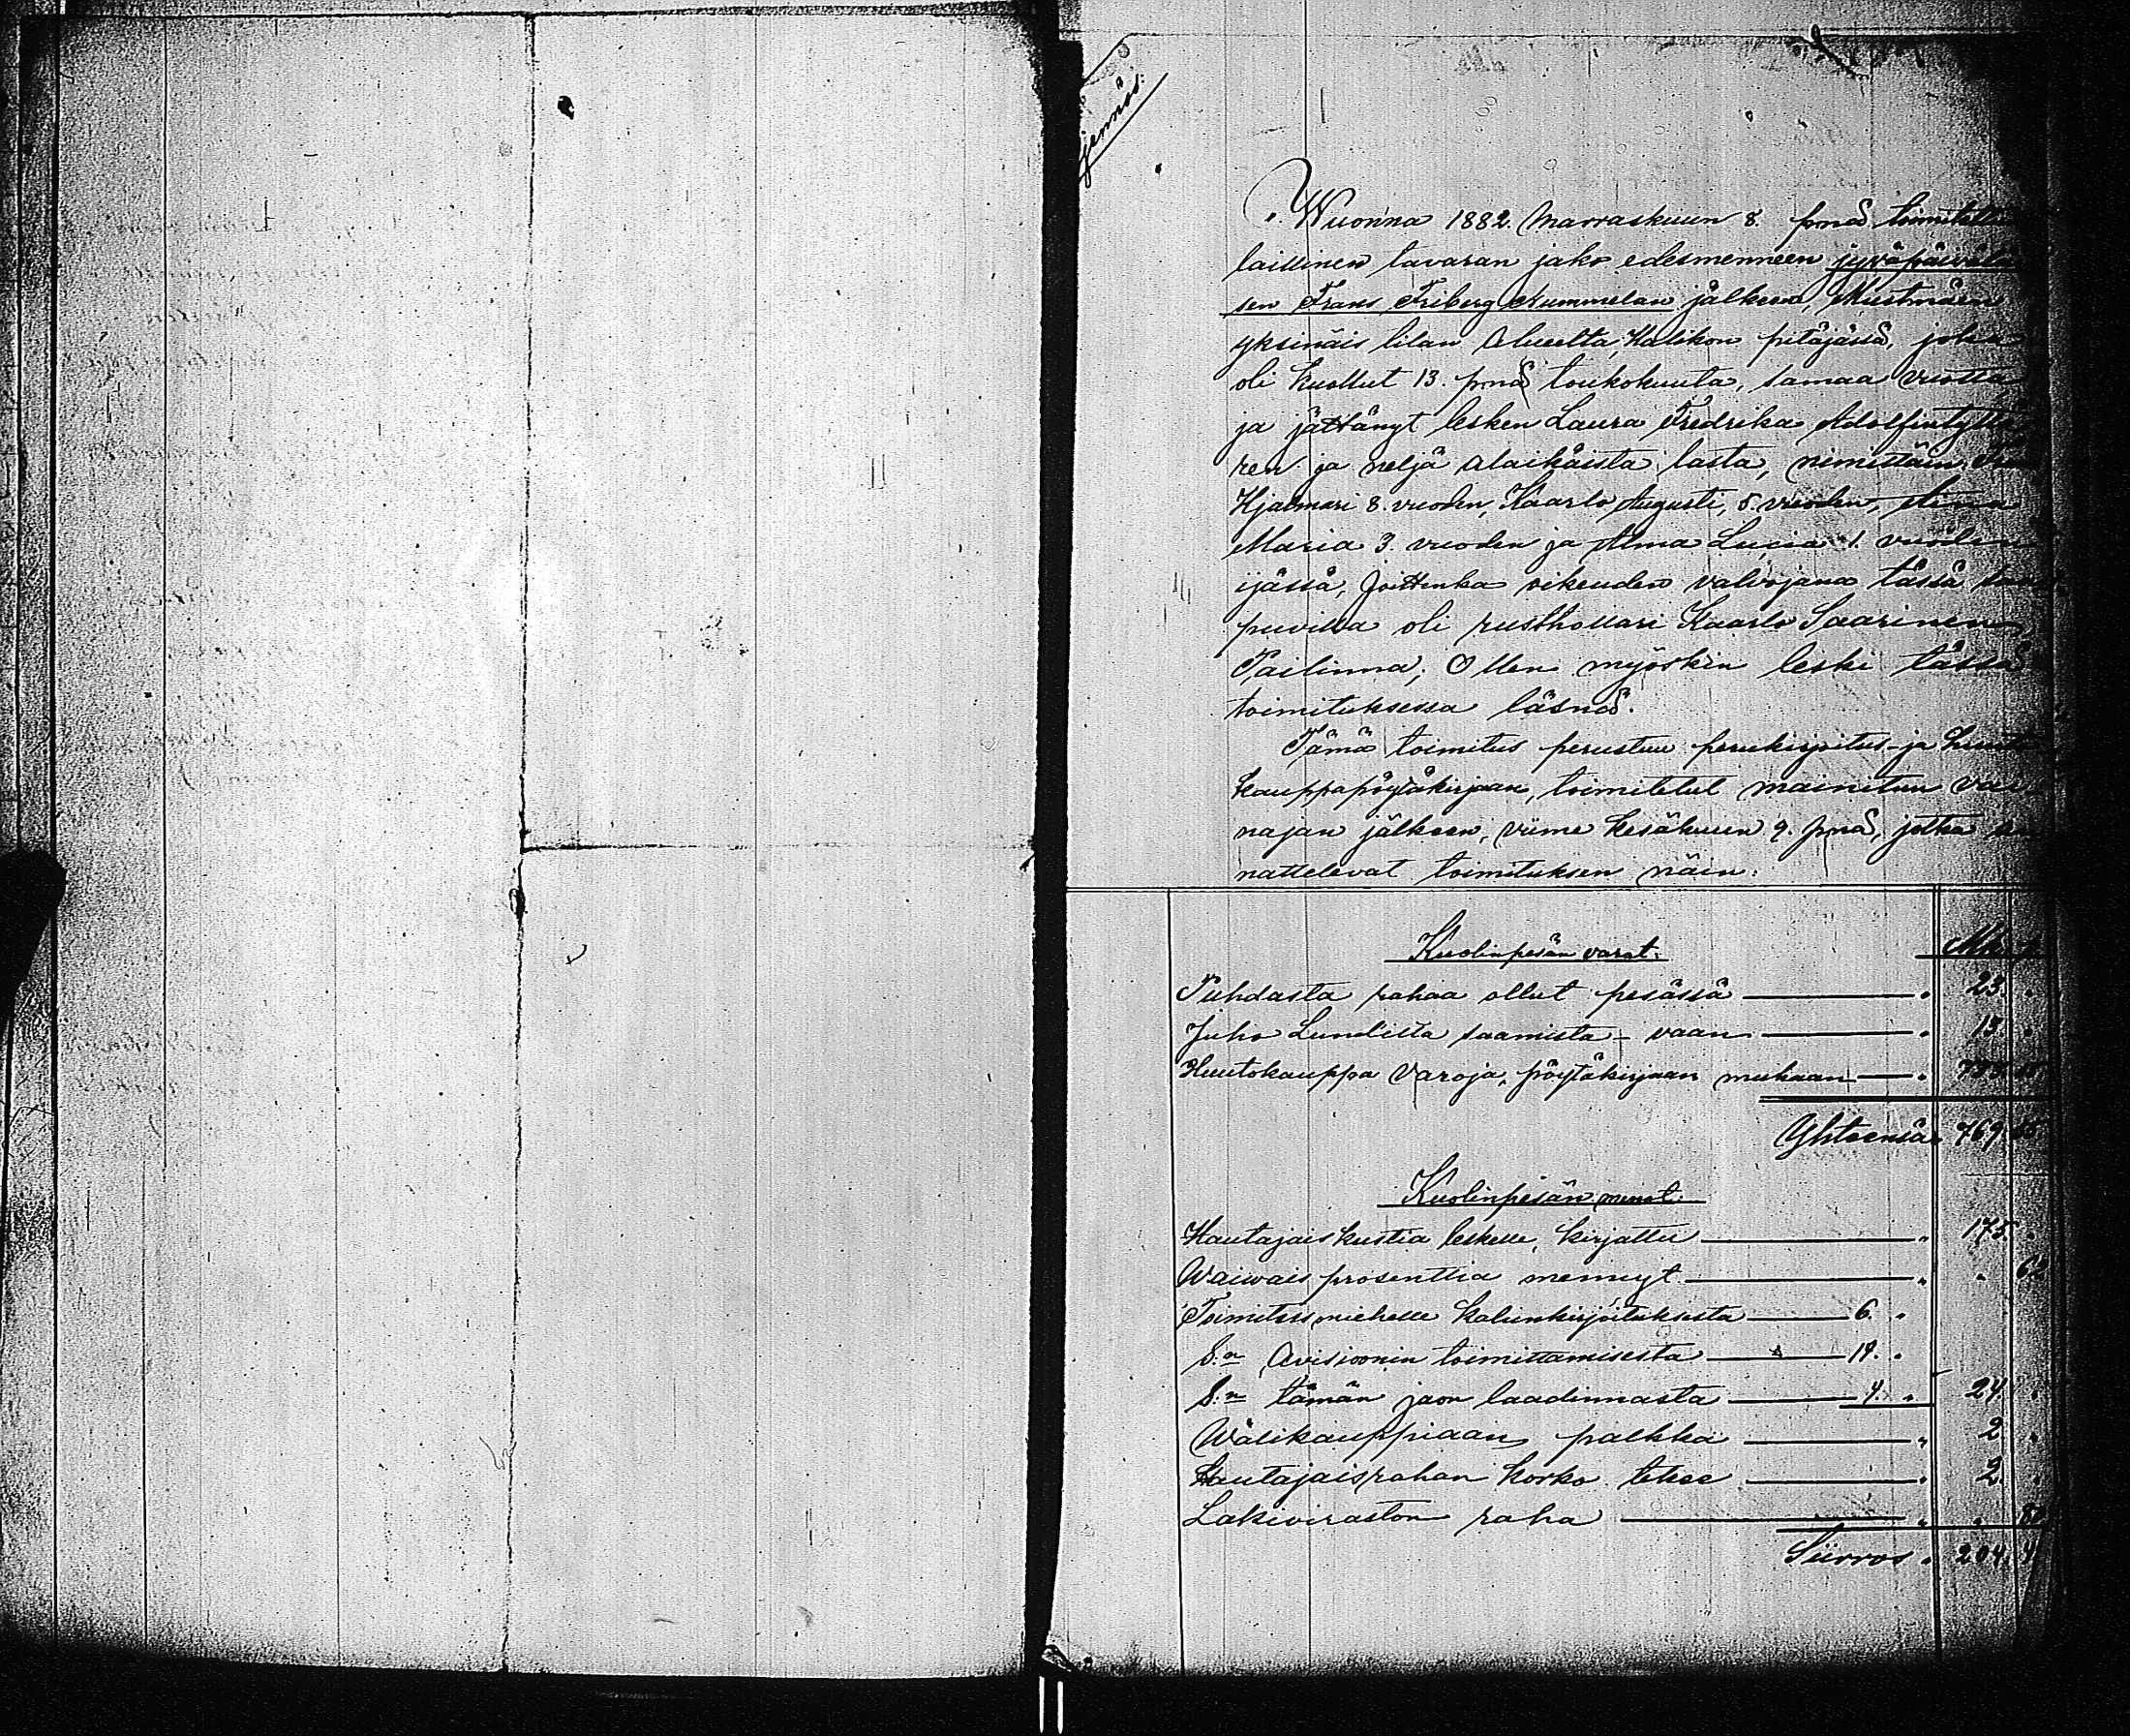 jennös:
Wuonna 1882. Marraskuun 8. pnä toimitettu
laillinen tavaran jako edesmenneen jyväpäiväläi
sen Frans Friberg Nummelan jälkeen, Mustmäen
yksinäis tilan Alueelta, Halikon pitäjässä, joka
oli kuollut 13. pnä toukokuuta, samaa vuotta,
ja jättänyt lesken Laura Fredrika Adolfintytt
ren ja neljä alaikäistä lasta, nimittäin:
Hjalmari 8. vuoden, Kaarlo Augusti, 5. vuoden,
Maria 3. vuoden ja Alma Lucia 1. vuoden
ijässä, Joittenka oikeuden valvojana tässä
puvilla oli rusthollari Kaarlo Saarinen,
Pailinna; Ollen myöskin leski tässä
toimituksessa läsnä.
Tämä toimitus perustuu perukirjoitus- ja huuto
kauppapöytäkirjaan, toimitetut mainitun vai
najan jälkeen, viime kesäkuun 9. pnä, jotka
nattelevat toimituksen näin:
Kuolinpesän varat. Mk. p.
Puhdasta rahaa ollut pesässä — " 23. "
Juho Lundilta saamista - vaan — " 13 "
Huutokauppa varoja, pöytäkirjaan mukaan — "
Yhteensä 769.
Kuolinpesän menot.
Hautajais kustia leskelle, kirjattu — " 175. "
Waiwais prosenttia mennyt — " " 62
Toimitus miehelle kalunkirjoituksesta — 6. "
S:n Avisioonin toimittamisesta — 14. "
S:n tämän jaon laadinnasta — 4. " 24. "
Wälikauppiaan palkka — " 2 "
Hautajaisrahan korko tekee — " 2. "
Lakiviraston raha — " "
Siirros " 204.